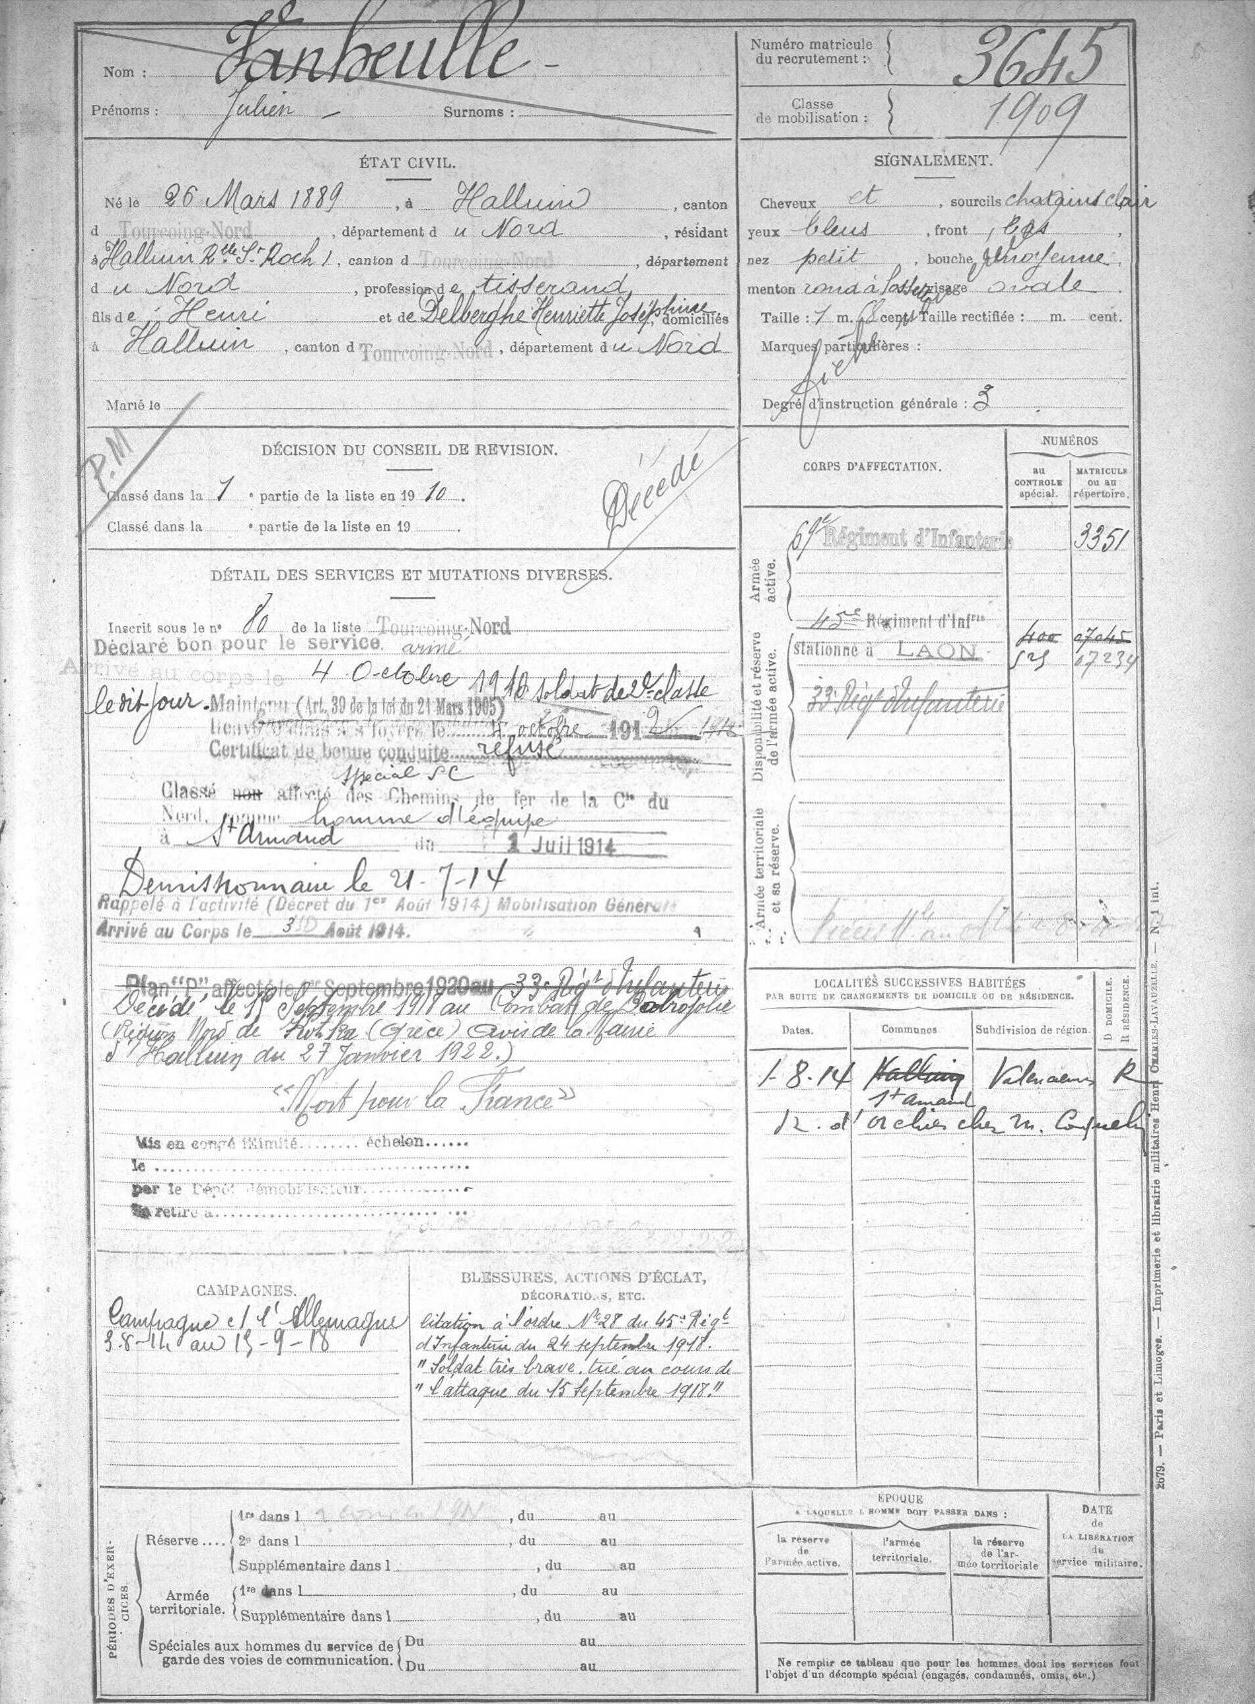 Nom : Vanheulle
Prénoms : Julien Surnoms :
Numéro matricule du recrutement : 3645
Classe de mobilisation : 1909
ÉTAT CIVIL.
Né le 26 Mars 1889, à Halluin, canton
d Tourcoing-Nord, département du Nord, résidant
à Halluin Rlle St Roch 1, canton d Tourcoing-Nord, département
du Nord, profession de tisserand
fils de Henri et de Delberghe Henriette Joséphine, domiciliés
à Halluin, canton d Tourcoing-Nord, département du Nord
Marié le
SIGNALEMENT.
Cheveux et, sourcils chatains clair
yeux bleus, front bas,
nez petit, bouche moyenne,
menton rond à fossette visage ovale.
Taille : 1 m. cent. Taille rectifiée : m. cent.
Marques particulières :
Degré d'instruction générale : 3.
P.M
DÉCISION DU CONSEIL DE REVISION.
Classé dans la 1e partie de la liste en 1910.
Classé dans la e partie de la liste en 19 .
Décédé
DÉTAIL DES SERVICES ET MUTATIONS DIVERSES.
Inscrit sous le n° 80 de la liste Tourcoing-Nord
Déclaré bon pour le service armé
Arrivé au corps le 4 Octobre 1910 soldat de 2e classe
le dit jour. Maintenu (Art. 39 de la loi du 21 Mars 1905)
dans ses foyers le 4 octobre 1912
Certificat de bonne conduite refusé
spécial SC
Classé non affecté des Chemins de fer de la Cie du
Nord, comme homme d'équipe
à St Amand du 1 Juil 1914
Demissionnaire le 21-7-14
Rappelé à l'activité (Décret du 1er Août 1914) Mobilisation Générale
Arrivé au Corps le 3 Août 1914.
Plan "P" affecté le 1er Septembre 1920 au 33e Régt d'Infanterie
Décédé le 15 Septembre 1918 au Combat de
(Région Nord de (Grèce) avis de la Mairie
d'Halluin du 27 Janvier 1922.)
"Mort pour la France"
Mis en congé illimité........ échelon......
le
par le Dépôt démobilisateur
Se retire à
CORPS D'AFFECTATION.
NUMÉROS
au CONTROLE spécial.
MATRICULE ou au répertoire.
Armée active.
69e Régiment d'Infanterie 3351
Disponibilité et réserve de l'armée active.
45e Régiment d'Infrie 400 07045
stationné à LAON 525 07234
33e Régt d'Infanterie
Armée territoriale et sa réserve.
LOCALITÉS SUCCESSIVES HABITÉES
PAR SUITE DE CHANGEMENTS DE DOMICILE OU DE RÉSIDENCE.
Dates. Communes Subdivision de région. D DOMICILE. R RÉSIDENCE.
1-8-14 Halluin Valenciennes R
St Amand
r. d'Orchies chez M.
CAMPAGNES.
Campagne ct l'Allemagne
3-8-14 au 15-9-18
BLESSURES, ACTIONS D'ÉCLAT,
DÉCORATIONS, ETC.
Citation à l'ordre N° 28 du 45e Régt
d'Infanterie du 24 septembre 1918.
"Soldat très brave, tué au cours de
"l'attaque du 15 Septembre 1918."
PÉRIODES D'EXERCICES.
Réserve....
1re dans l , du au
2e dans l , du au
Supplémentaire dans l , du au
Armée territoriale.
1re dans l , du au
Supplémentaire dans l , du au
Spéciales aux hommes du service de garde des voies de communication.
Du au
Du au
ÉPOQUE
A LAQUELLE L'HOMME DOIT PASSER DANS :
la réserve de l'armée active.
l'armée territoriale.
la réserve de l'armée territoriale
DATE de LA LIBÉRATION du service militaire.
Ne remplir ce tableau que pour les hommes dont les services font
l'objet d'un décompte spécial (engagés, condamnés, omis, etc.)
2679. — Paris et Limoges. — Imprimerie et librairie militaires Henri CHARLES-LAVAUZELLE. — N. 1 int.